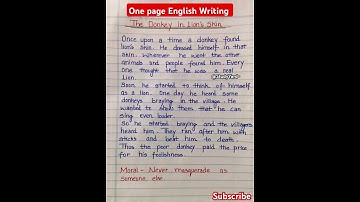 One page English Writing
The Donkey in Lion's Skin
Once upon a time a donkey found
lion's skin. He dressed himself in that
skin. Wherever he went the other
animals and people found him. Every
one thought that he was a real
Lion.
Soon, he started to think of himself
as a lion. One day he heard some
donkeys braying in the village. He
wanted to show them that he can
sing even louder.
So he started braying and the villagers
heard him. They ran after him with
sticks and beat him to death.
Thus the poor donkey paid the price
for his foolishness.
Moral - Never masquerade as
someone else.
Subscribe